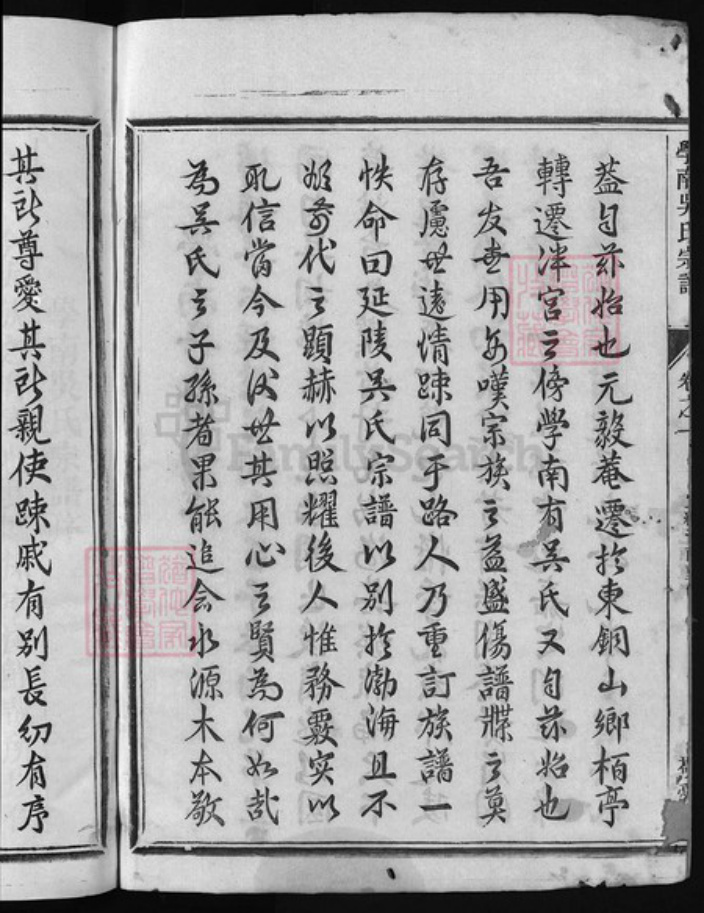 學南吳氏宗譜
卷之一
蓋自茲始也元毅菴遷於東銅山鄉柏亭
轉遷泮宮之傍學南有吳氏又自茲始也
吾友 用安嘆宗族之益盛傷譜牒之莫
存慮世遠情疎同于路人乃重訂族譜一
帙命曰延陵吳氏宗譜以別於渤海且不
 前代之顯赫以照耀後人惟務覈實以
取信當今及後世其用心之賢為何如哉
為吳氏之子孫者果能追念水源木本敬
其所尊愛其所親使疎戚有別長幼有序
FamilySearch